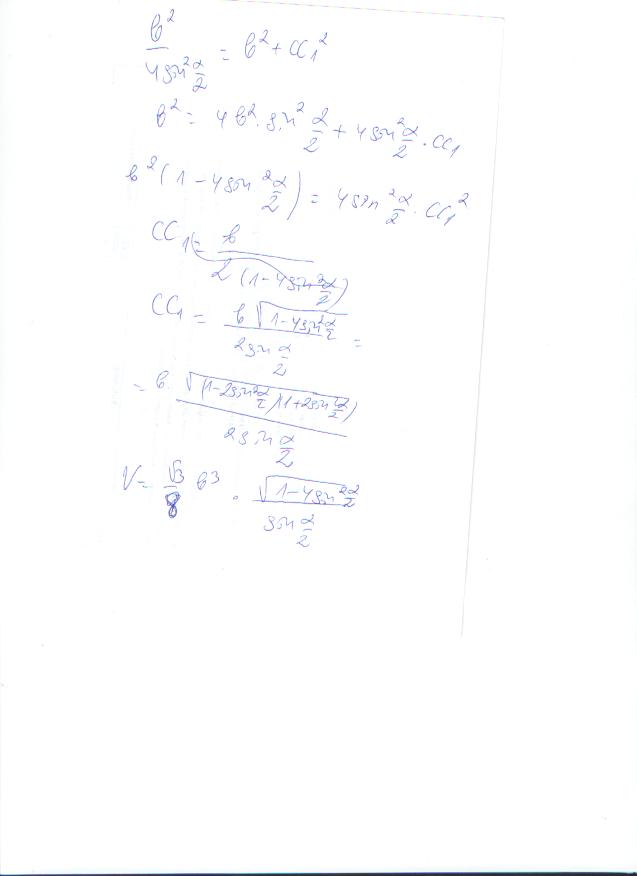 b² / (4 sin² α/2) = b² + CC₁²
b² = 4b² · sin² α/2 + 4 sin² α/2 · CC₁
b² (1 − 4 sin² α/2) = 4 sin² α/2 · CC₁²
CC₁ = b / (2 (1 − 4 sin² α/2))
CC₁ = b √(1 − 4 sin² α/2) / (2 sin α/2) =
= b · √((1 − 2 sin² α/2)(1 + 2 sin² α/2)) / (2 sin α/2)
V = √3/8 b³ · √(1 − 4 sin² α/2) / (sin α/2)